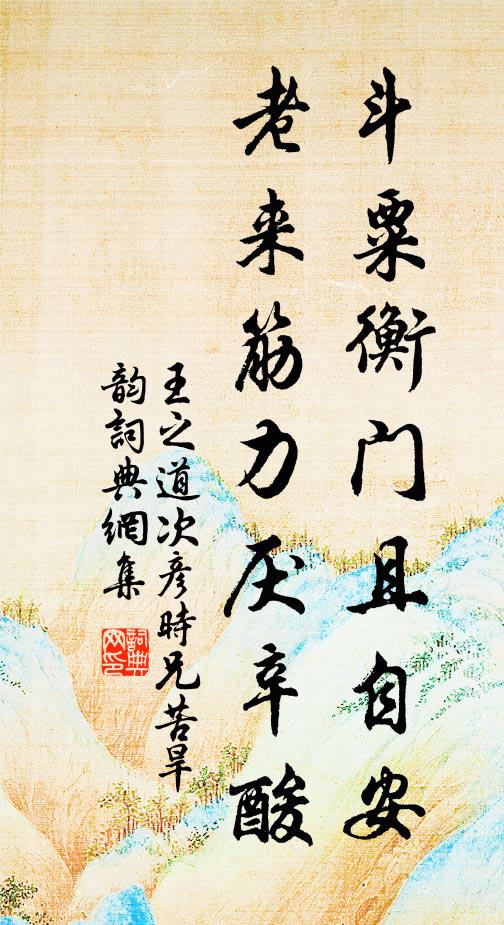 斗粟衡门且自安
老来筋力厌辛酸
王之道次彦時兄苦旱
韵詞典網集
詞典网印